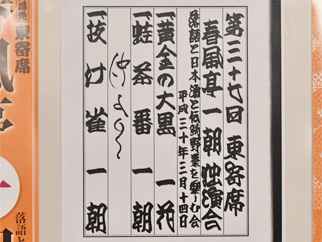 第三十九回 東寄席
春風亭一朝独演会
落語と日本酒と伝統野菜を楽しむ会
平成三十年三月十四日
一黄金の大黒 一花
一蛙茶番 一朝
仲入り
一抜け雀 一朝
東寄席
落語と